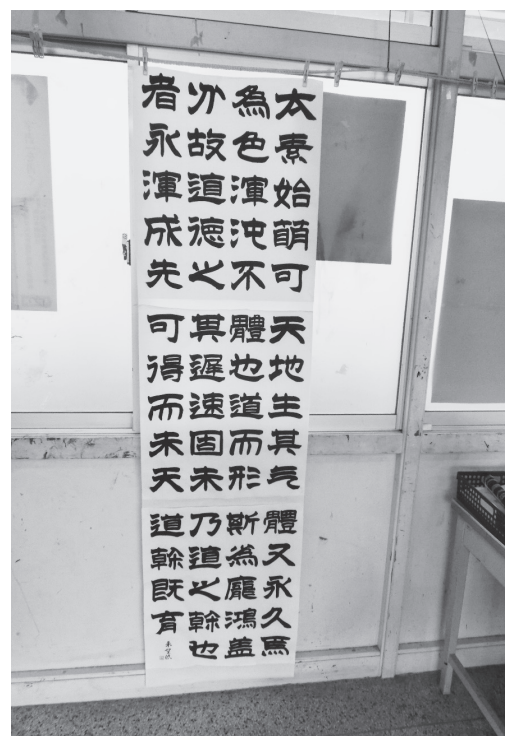 太素始萌可
為色渾沌不
分故道徳之
者永渾成先
天地生其气
體也道而形
其遲速固未
可得而未天
體又永久焉
斯為龐鴻盖
乃道之幹也
道幹既育